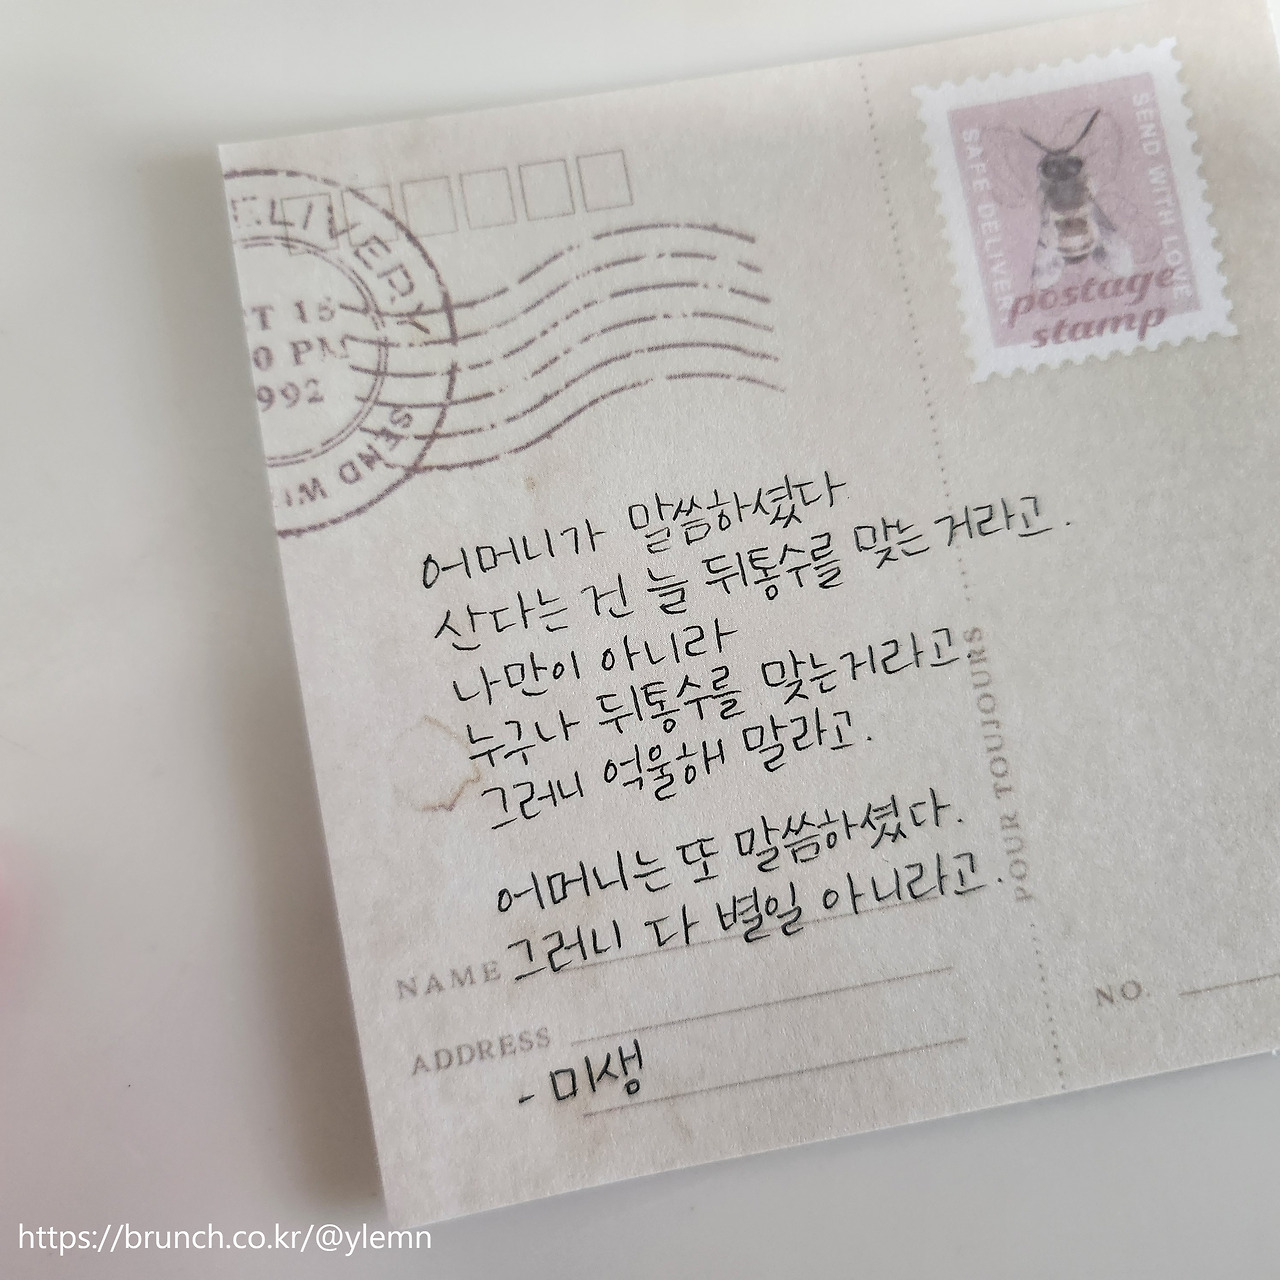 ELIVERY
T 15
0 PM
992
SEND WI
SEND WITH LOVE
SAFE DELIVERY
postage
stamp
어머니가 말씀하셨다
산다는 건 늘 뒤통수를 맞는 거라고.
나만이 아니라
누구나 뒤통수를 맞는거라고.
그러니 억울해 말라고.
어머니는 또 말씀하셨다.
그러니 다 별일 아니라고.
POUR TOUJOURS
NAME
ADDRESS
NO.
- 미생
https://brunch.co.kr/@ylemn